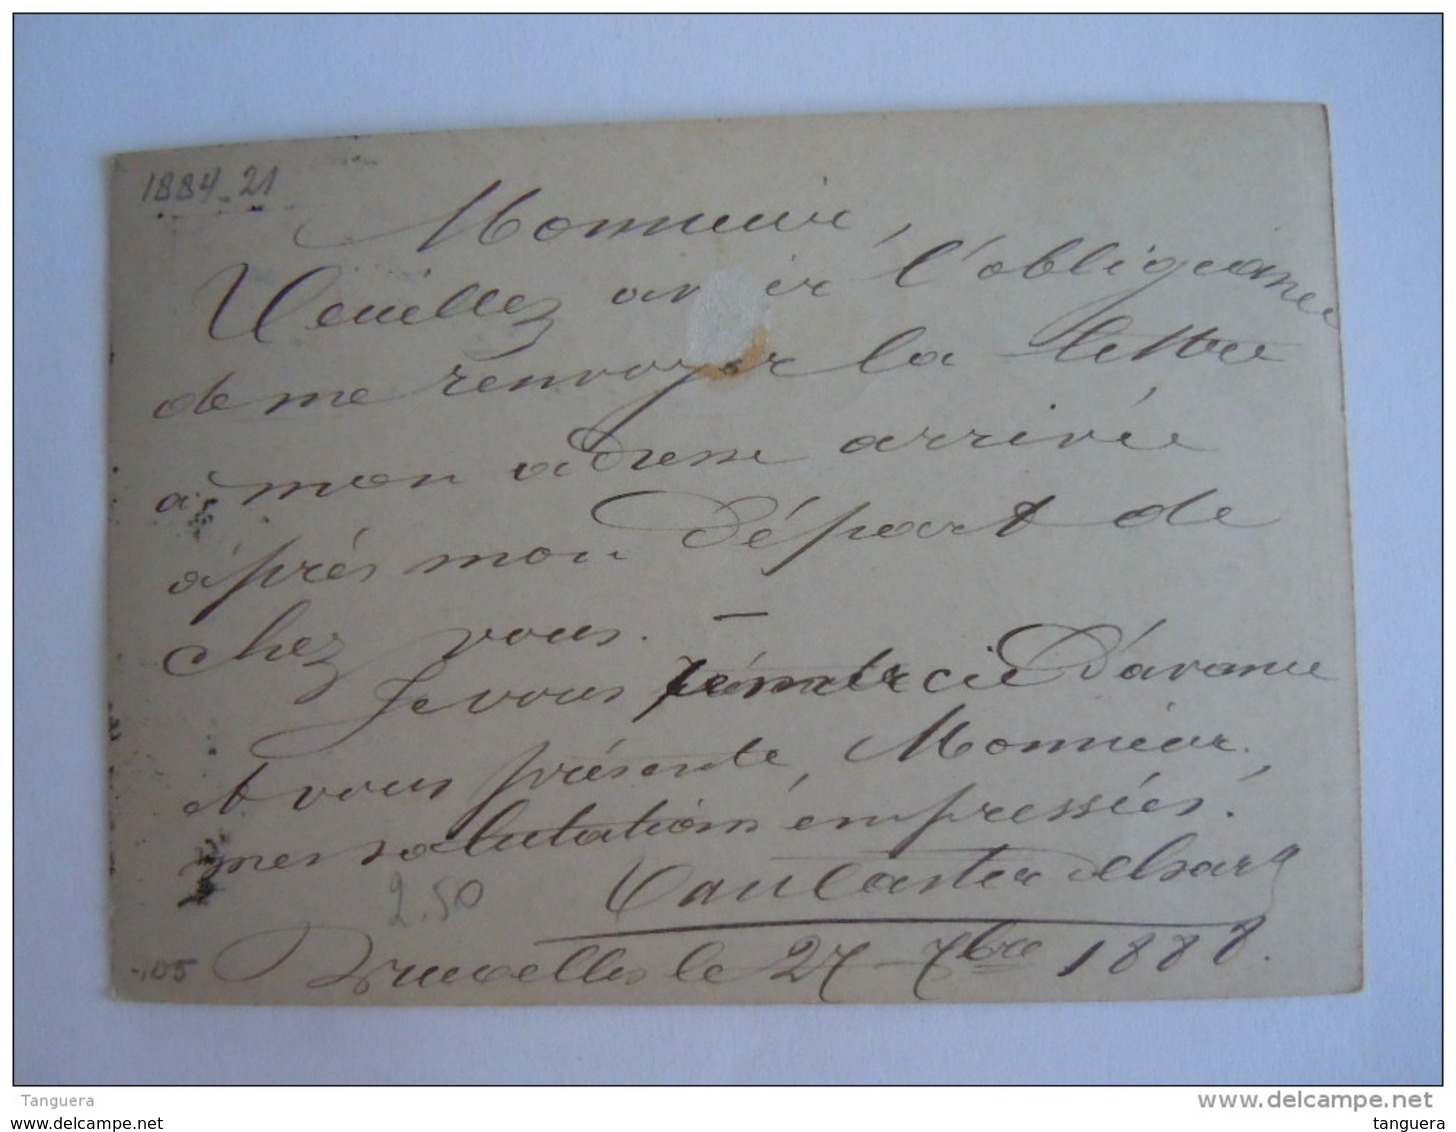 1884-21
Monsieur,
Veuillez avoir l'obligeance
de me renvoyer la lettre
à mon adresse arrivée
après mon départ de
chez vous. —
Je vous remercie d'avance
et vous présente, Monsieur,
mes salutations empressées.
Van Caster
2.50
Bruxelles le 27 7bre 1888.
-105
Tanguera
www.delcampe.net
tanguera